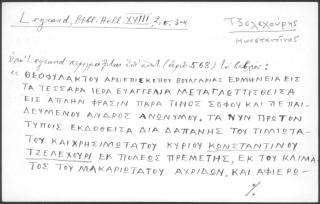 Legrand, Bibl. Hell. XVIII, 2, σ. 3-4.
Τζελεχούρης
Κωνσταντῖνος
Ὑπὸ Legrand περιγράφεται ὑπ' ἀριθ. (ἀριθ 568) τὸ βιβλίον:
« ΘΕΟΦΥΛΑΚΤΟΥ ΑΡΧΙΕΠΙΣΚΟΠΟΥ ΒΟΥΛΓΑΡΙΑΣ ΕΡΜΗΝΕΙΑ ΕΙΣ
ΤΑ ΤΕΣΣΑΡΑ ΙΕΡΑ ΕΥΑΓΓΕΛΙΑ ΜΕΤΑΓΛΩΤΤΙΣΘΕΙΣΑ
ΕΙΣ ΑΠΛΗΝ ΦΡΑΣΙΝ ΠΑΡΑ ΤΙΝΟΣ ΣΟΦΟΥ ΚΑΙ ΠΕΠΑΙ-
ΔΕΥΜΕΝΟΥ ΑΝΔΡΟΣ ΑΝΩΝΥΜΟΥ. ΤΑ ΝΥΝ ΠΡΩΤΟΝ
ΤΥΠΟΙΣ ΕΚΔΟΘΕΙΣΑ ΔΙΑ ΔΑΠΑΝΗΣ ΤΟΥ ΤΙΜΙΩΤΑ-
ΤΟΥ ΚΑΙ ΧΡΗΣΙΜΩΤΑΤΟΥ ΚΥΡΙΟΥ ΚΩΝΣΤΑΝΤΙΝΟΥ
ΤΖΕΛΕΧΟΥΡΗ ΕΚ ΠΟΛΕΩΣ ΠΡΕΜΕΤΗΣ, ΕΚ ΤΟΥ ΚΛΙΜΑ-
ΤΟΣ ΤΟΥ ΜΑΚΑΡΙΩΤΑΤΟΥ ΑΧΡΙΔΩΝ. ΚΑΙ ΑΦΙΕΡΩ-
·/.